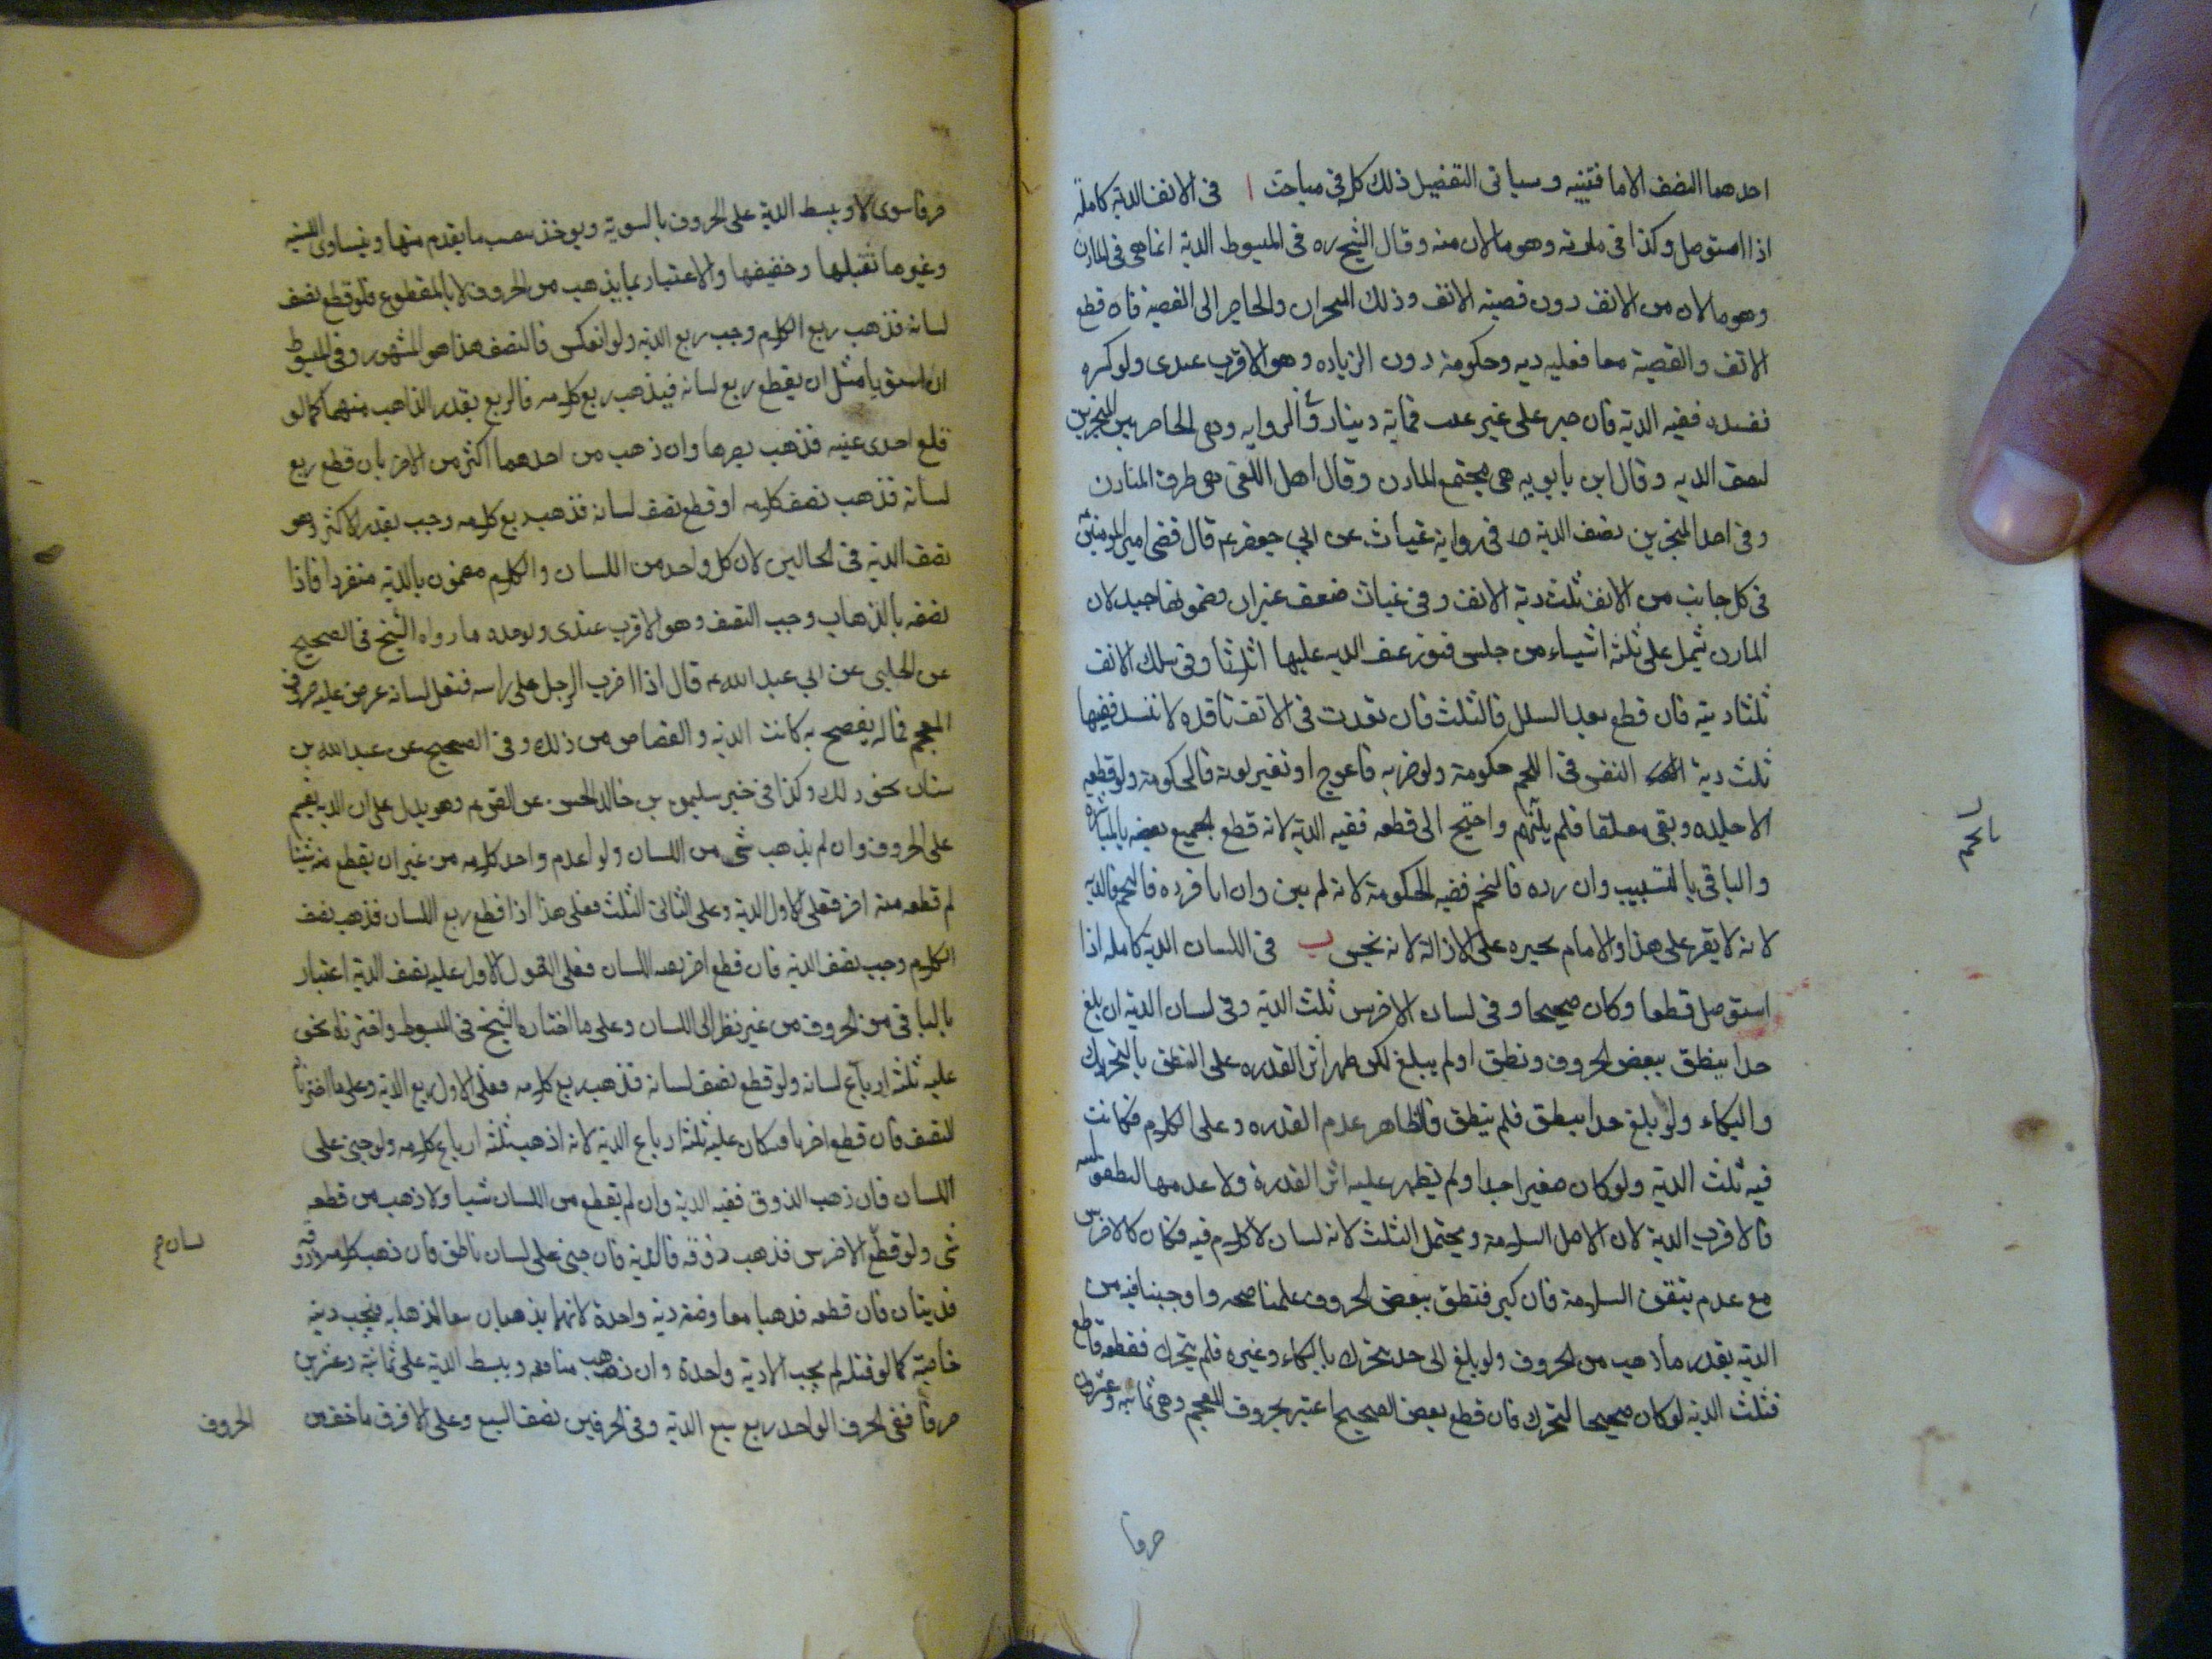 احدهما النصف الا ما فقييه وسياتى التفصيل ذلك كله فى مباحث ا فى الانف الدية كاملة
اذا استوصل وكذا فى مارنه وهو ما لان منه وقال الشيخ ره فى المبسوط الدية انما هى فى المارن
وهو ما لان من الانف دون قصبة الانف وذلك المنخران والحاجز الى القصبة فان قطع
الانف والقصبة معا فعليه ديه وحكومة دون الزياده وهو الاقرب عندى ولو كسره
ففسده ففيه الدية فان جبر على غير عيب فماية دينار وفى الروايه وهى الحاجز بين المنخرين
نصف الديه وقال ابن بابويه هى مجتمع المارن وقال اهل اللغة هى طرف المارن
وفى احد المنخرين نصف الدية فى رواية غياث عن ابى جعفر ع قال قضى امير المومنين
فى كل جانب من الانف ثلث دية الانف وفى غياث ضعف غير ان مضمونها جيد لان
المارن يشمل على ثلثه اشياء من جلس فتوزعت الديه عليها اثلاثا وفى شلل الانف
ثلثا ديته فان قطع بعد الشلل فالثلث فان نفذت فى الانف نافذه لا تنسد ففيها
ثلث دية النفس فى اللحم حكومة ولو ضربه فاعوج او تغير لونه فالحكومة ولو قطعه
الا جلده وبقى معلقا فلم يلتئم واحتيج الى قطعه ففيه الدية لانه قطع الجميع بعضه بالمباشره
والباقى بالتسبيب وان رده فالتحم ففيه الحكومة لانه لم يبن وان ابانه فرده فالتحم فالدية
لانه لا يقر على هذا والامام يجبره على الازالة لانه نجس ب فى اللسان الدية كامله اذا
استوصل قطعا وكان صحيحا وفى لسان الاخرس ثلث الدية وفى لسان الدية ان بلغ
حدا ينطق ببعض الحروف ونطق او لم يبلغ لكن ظهر اثر القدره على النطق بالتحريك
والبكاء ولو بلغ حدا ينطق فلم ينطق فالظاهر عدم القدره وعلى الكلام فكانت
فيه ثلث الدية ولو كان صغيرا جدا ولم يظهر عليه اثر القدرة ولا عدمها لطفوليته
فالاقرب الدية لان الاصل السلامة ويحتمل الثلث لانه لسان لا كلام فيه فكان كالاخرس
مع عدم تيقن السلامة فان كبر فنطق ببعض الحروف علمنا صحته واوجبنا فيه من
الدية بقدر ما ذهب من الحروف ولو بلغ الى حد يتحرك بالبكاء وغيره فلم يتحرك فقطعه قاطع
فثلث الدية لو كان صحيحا لتحرك فان قطع بعض الصحيح اعتبر بحروف المعجم وهى ثمانيه وعشرون
حرفا
حرفا سوى لا وبسط الدية على الحروف بالسوية ويوخذ نصيب ما يعدم منها ويتساوى اللسنيه
وغيرها ثقيلها وخفيفها والاعتبار بما يذهب من الحروف لا بالمقطوع فلو قطع نصف
لسانه فذهب ربع الكلام وجب ربع الدية ولو انعكس فالنصف هذا هو المشهور وفى المبسوط
ان استويا مثل ان يقطع ربع لسانه فيذهب ربع كلامه فالربع بقدر الذاهب منهما كما لو
قلع احدى عينيه فذهب بصرها وان ذهب من احدهما اكثر من الاخر بان قطع ربع
لسانه فذهب نصف كلامه او قطع نصف لسانه فذهب ربع كلامه وجب بقدر الاكثر وهو
نصف الدية فى الحالين لان كل واحد من اللسان والكلام مضمون بالدية منفردا فاذا
نصفه بالذهاب وجب النصف وهو الاقرب عندى ويويده ما رواه الشيخ فى الصحيح
عن الحلبى عن ابى عبد الله ع قال اذا ضرب الرجل على راسه فثقل لسانه عرض عليه حروف
المعجم فما لم يفصح به كانت الدية والقصاص من ذلك وفى الصحيح عن عبد الله بن
سنان نحو ذلك وكذا فى خبر سليمن بن خالد الحسن عن القوم وهو يدل على ان الدية تقسم
على الحروف وان لم يذهب شى من اللسان ولو اعدم واحد كلامه من غير ان يقطع منه شيئا
ثم قطعه منه اخر فعلى الاول الدية وعلى الثانى الثلث فعلى هذا اذا قطع ربع اللسان فذهب نصف
الكلام وجب نصف الدية فان قطع اخر بقية اللسان فعلى القول الاول عليه نصف الدية اعتبار
بالباقى من الحروف من غير نظر الى اللسان وعلى ما اختاره الشيخ فى المبسوط واخترناه نحن
عليه ثلثة ارباع لسانه ولو قطع نصف لسانه فذهب ربع كلامه فعلى الاول ربع الدية وعلى ما اخترناه
النصف فان قطع اخر باقيه كان عليه ثلثة ارباع الدية لانه اذهب ثلثة ارباع كلامه ولو جنى على
اللسان فان ذهب الذوق ففيه الدية وان لم يقطع من اللسان شيا ولا ذهب من قطعه
شى ولو قطع الاخرس فذهب ذوقه فالدية فان جنى على لسان ناطق فان ذهب كلامه وذوقه
فديتان فان قطعه فذهبا معا وضعه دية واحدة لانهما يذهبان معا لذهابه فيجب دية
خاصة كما لو قتله لم يجب الا دية واحدة وان ذهب منافعه ويبسط الدية على ثمانية وعشرين
حرفا ففى الحرف الواحد ربع سبع الدية وفى الحرفين نصف السبع وعلى الا فرق ما خف من
لسان صح
الحروف